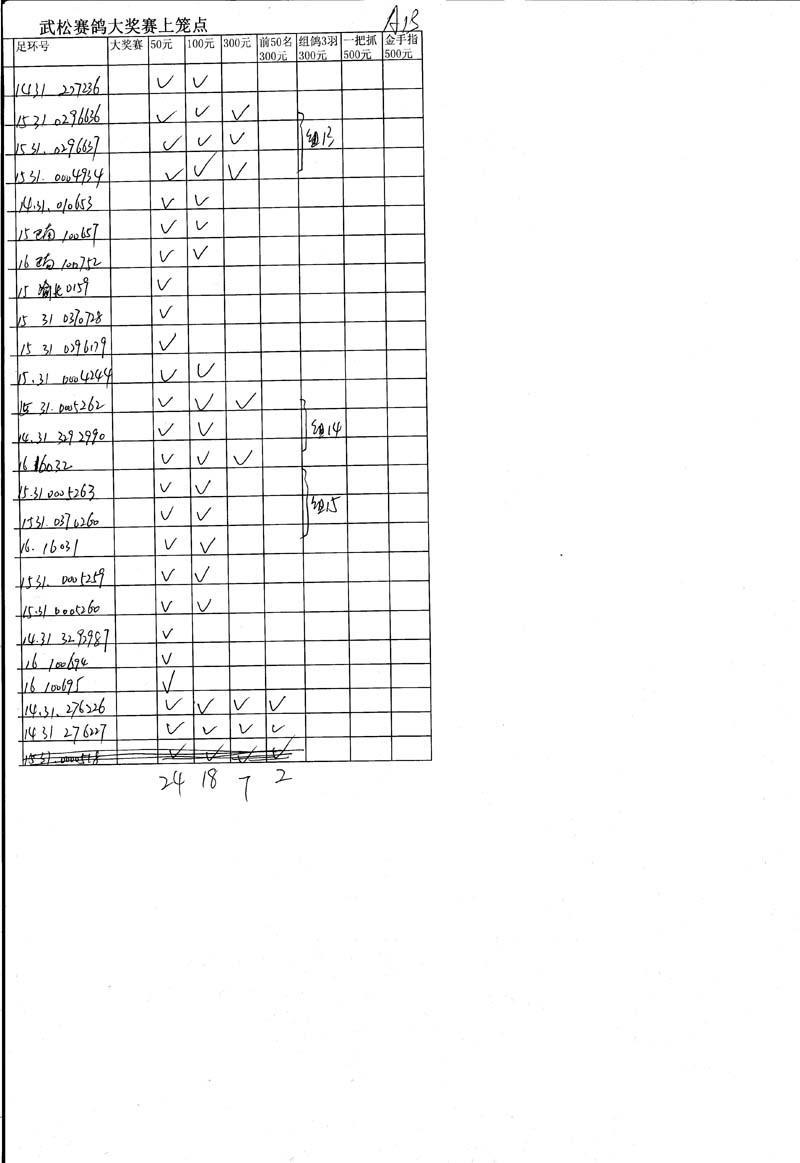 武松赛鸽大奖赛上笼点 A13
足环号 大奖赛 50元 100元 300元 前50名300元 组鸽3羽300元 一把抓500元 金手指500元
1431 227236 ✓ ✓
1531 0296636 ✓ ✓ ✓
1531. 0296637 ✓ ✓ ✓ 组13
1531. 0004934 ✓ ✓ ✓
14.31. 010653 ✓ ✓
15 100657 ✓ ✓
16 100752 ✓ ✓
15 渝北0159 ✓
15 31 0370728 ✓
15 31 0296179 ✓
15.31 0004244 ✓ ✓
15 31.0005262 ✓ ✓ ✓
14.31 3292990 ✓ ✓ 组14
16 16032 ✓ ✓ ✓
15.31 0005263 ✓ ✓
1531. 0370260 ✓ ✓ 组15
16. 16031 ✓ ✓
1531. 0005259 ✓ ✓
15.31 0005260 ✓ ✓
14.31 3292987 ✓
16 100694 ✓
16 100695 ✓
14.31. 276226 ✓ ✓ ✓ ✓
14.31 276227 ✓ ✓ ✓ ✓
1531.0000518 ✓ ✓ ✓ ✓
24 18 7 2